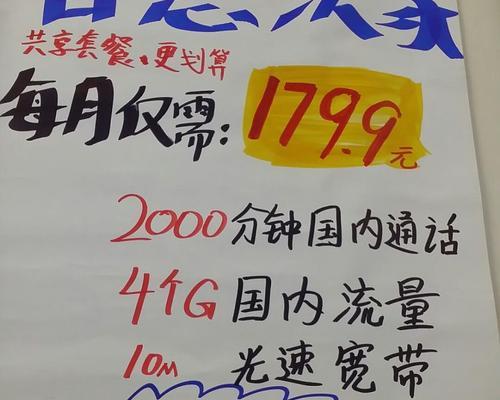 共享套餐、更划算
每月仅需:179.9元
2000分钟国内通话
4个G国内流量
10M 光速宽带